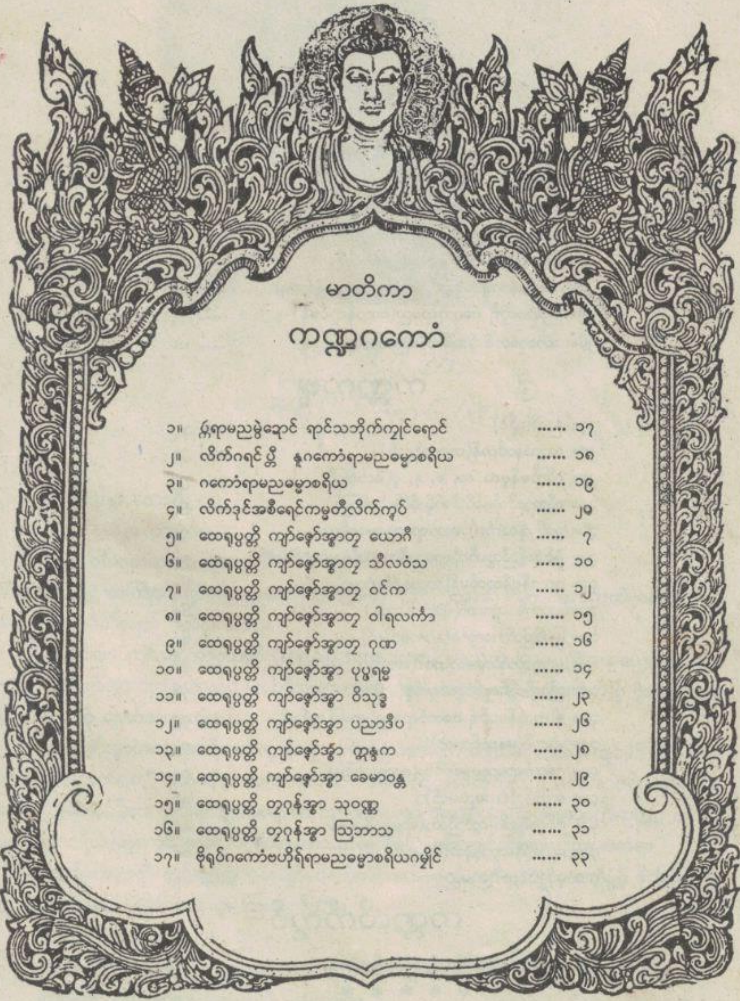 မာတိကာ
ကဏ္ဍဂကောံ
၁။ ဣရာမညမွဲဍောင် ရာင်သဘိုက်ကၠုင်ရောင် ...... ၁၇
၂။ လိက်ဂရင်ပ္တီ နူဂကောံရာမညဓမ္မာစရိယ ...... ၁၈
၃။ ဂကောံရာမညဓမ္မာစရိယ ...... ၁၉
၄။ လိက်ဒုင်အစဳရေင်ကမ္မတဳလိက်ကုပ် ...... ၂၀
၅။ ထေရုပ္ပတ္တိ ကျာ်ဇၞော်အ္စာတၠ ယောဂဳ ...... ၇
၆။ ထေရုပ္ပတ္တိ ကျာ်ဇၞော်အ္စာတၠ သဳလဝံသ ...... ၁၀
၇။ ထေရုပ္ပတ္တိ ကျာ်ဇၞော်အ္စာတၠ ဝင်က ...... ၁၂
၈။ ထေရုပ္ပတ္တိ ကျာ်ဇၞော်အ္စာတၠ ဝါရလင်္ကာ ...... ၁၅
၉။ ထေရုပ္ပတ္တိ ကျာ်ဇၞော်အ္စာတၠ ဂုဏ ...... ၁၆
၁၀။ ထေရုပ္ပတ္တိ ကျာ်ဇၞော်အ္စာ ပုပ္ဖရမ္မ ...... ၁၄
၁၁။ ထေရုပ္ပတ္တိ ကျာ်ဇၞော်အ္စာ ဝိသုဒ္ဓ ...... ၂၃
၁၂။ ထေရုပ္ပတ္တိ ကျာ်ဇၞော်အ္စာ ပညာဒဳပ ...... ၂၆
၁၃။ ထေရုပ္ပတ္တိ ကျာ်ဇၞော်အ္စာ ဣန္ဒက ...... ၂၈
၁၄။ ထေရုပ္ပတ္တိ ကျာ်ဇၞော်အ္စာ ခေမာဝန္တ ...... ၂၉
၁၅။ ထေရုပ္ပတ္တိ တၠဂုန်အ္စာ သုဝဏ္ဏ ...... ၃၀
၁၆။ ထေရုပ္ပတ္တိ တၠဂုန်အ္စာ ဩဘာသ ...... ၃၁
၁၇။ ဗီုရုပ်ဂကောံဗဟိုရ်ရာမညဓမ္မာစရိယဂမၠိုင် ...... ၃၃